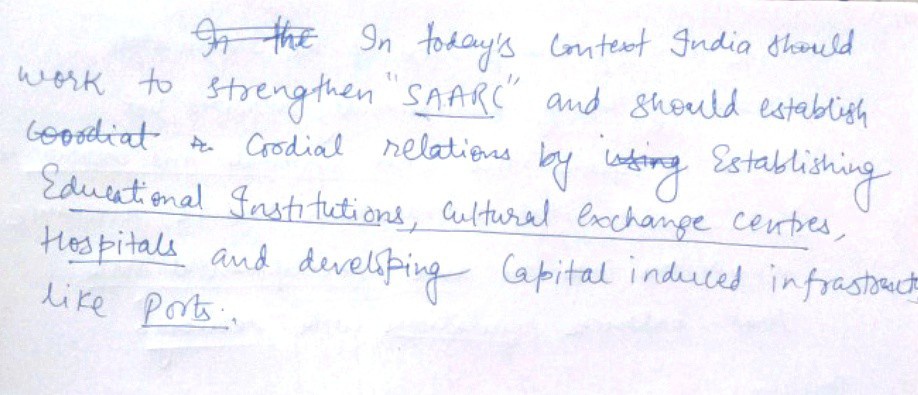 In the In today's Context India should
work to strengthen "SAARC" and should establish
Coordiat r Cordial relations by using Establishing
Educational Institutions, Cultural Exchange centres,
Hospitals and developing Capital induced infrastruct
like Ports.